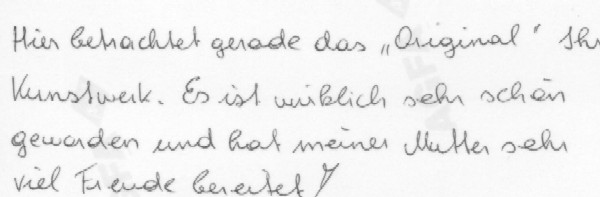 Hier betrachtet gerade das „Original“ Ihr
Kunstwerk. Es ist wirklich sehr schön
geworden und hat meiner Mutter sehr
viel Freude bereitet!